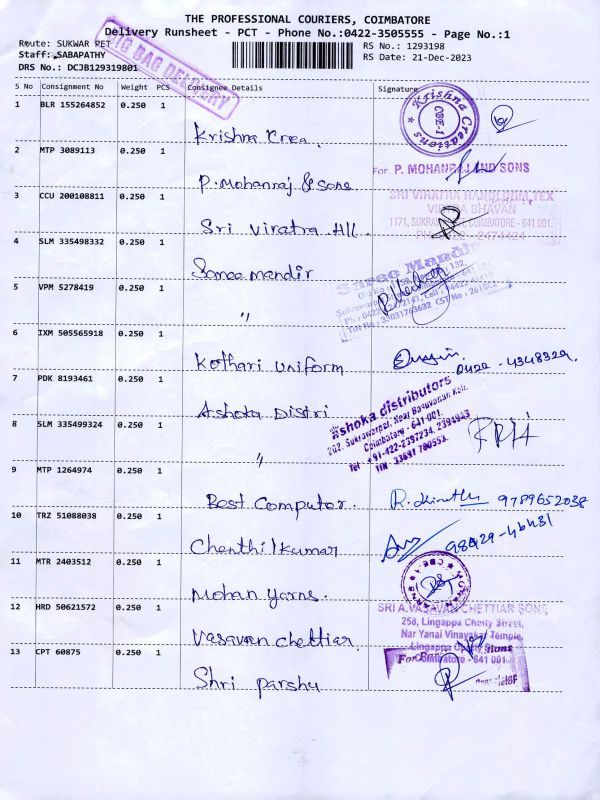 THE PROFESSIONAL COURIERS, COIMBATORE
Delivery Runsheet - PCT - Phone No.:0422-3505555 - Page No.:1
Route: SUKWAR PET
RS No.: 1293198
Staff: SABAPATHY
RS Date: 21-Dec-2023
DRS No.: DCJB129319801
BIG BAG DELIVERY
S No Consignment No Weight PCS Consignee Details Signature
1 BLR 155264852 0.250 1
Krishna Crea.
Krishna Creations
CBE-1
2 MTP 3089113 0.250 1
P. Mohanraj & sons
For P. MOHANRAJ AND SONS
3 CCU 200108811 0.250 1
Sri Viratra Hll.
SRI VIRATRA HANDLOOM TEX
BHAVAN
COIMBATORE - 641 001.
4 SLM 335498332 0.250 1
Saree mandir
Saree Mandir
5 VPM 5278419 0.250 1
"
6 IXM 505565918 0.250 1
Kothari Uniform
0422 - 4348329
7 PDK 8193461 0.250 1
Ashoka Distri
Ashoka distributors
202, Sukrawarpet, Near Basuvanan Koil,
Coimbatore - 641 001.
Tel : +91-422-2397234, 2394943
8 SLM 335499324 0.250 1
"
9 MTP 1264974 0.250 1
Best Computer.
9789652038
10 TRZ 51088038 0.250 1
Chenthilkumar
11 MTR 2403512 0.250 1
Mohan yarns.
12 HRD 50621572 0.250 1
Vasavan chettiar
SRI A.VASAVAN CHETTIAR SONS
258, Lingappa Chetty Street,
Nar Yanai Vinayakar Temple,
Coimbatore - 641 001.
13 CPT 60875 0.250 1
Shri parshu